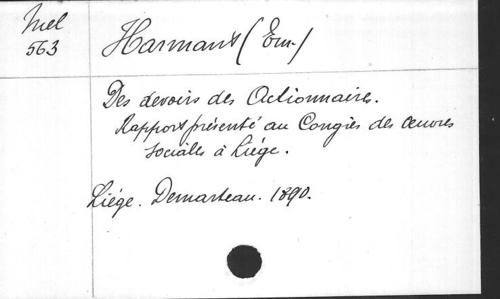 Mel
563
Harmant (Em.)
Des devoirs des Actionnaires.
Rapport présenté au Congrès des œuvres
sociales à Liége.
Liége. Demarteau. 1890.